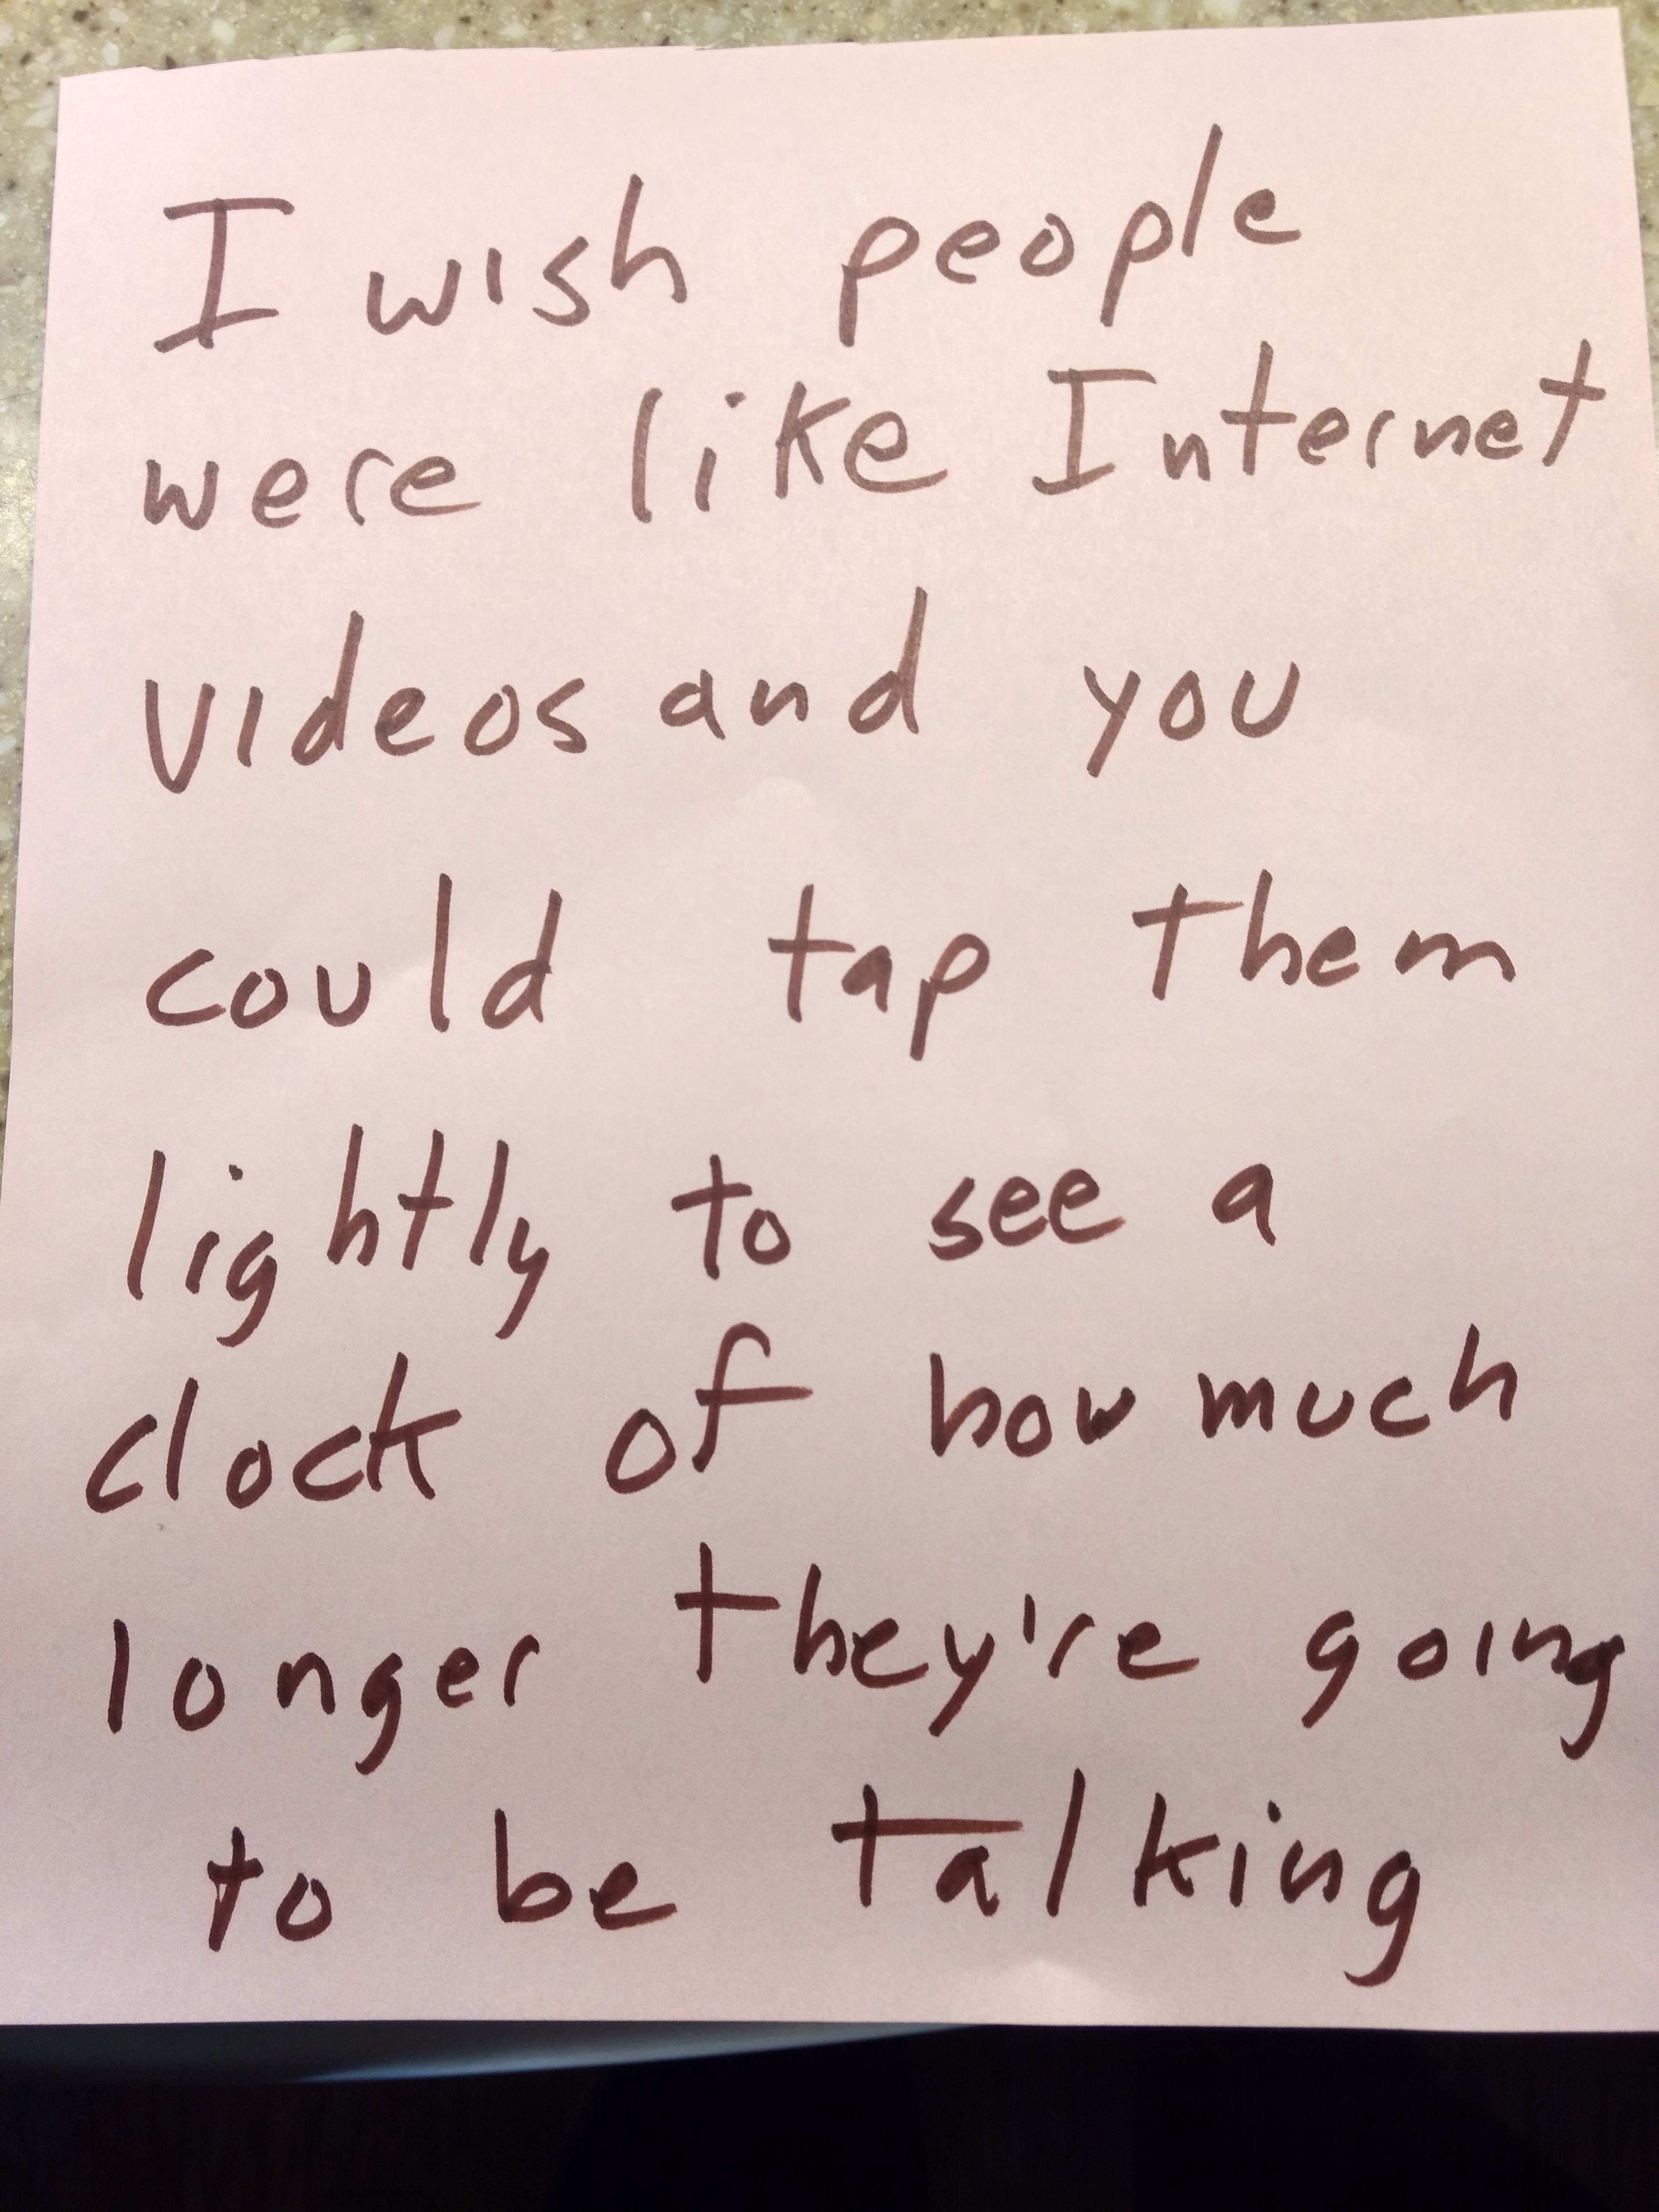 I wish people
were like Internet
videos and you
could tap them
lightly to see a
clock of how much
longer they're going
to be talking